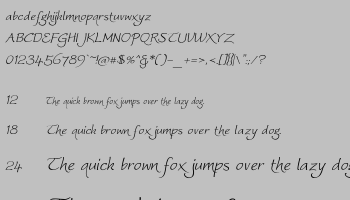 abcdefghijklmnopqrstuvwxyz
ABCDEFGHIJKLMNOPQRSTUVWXYZ
0123456789`~!@#$%^&*()-_+=>,<.[]{}\":;/?
12 The quick brown fox jumps over the lazy dog.
18 The quick brown fox jumps over the lazy dog.
24 The quick brown fox jumps over the lazy dog